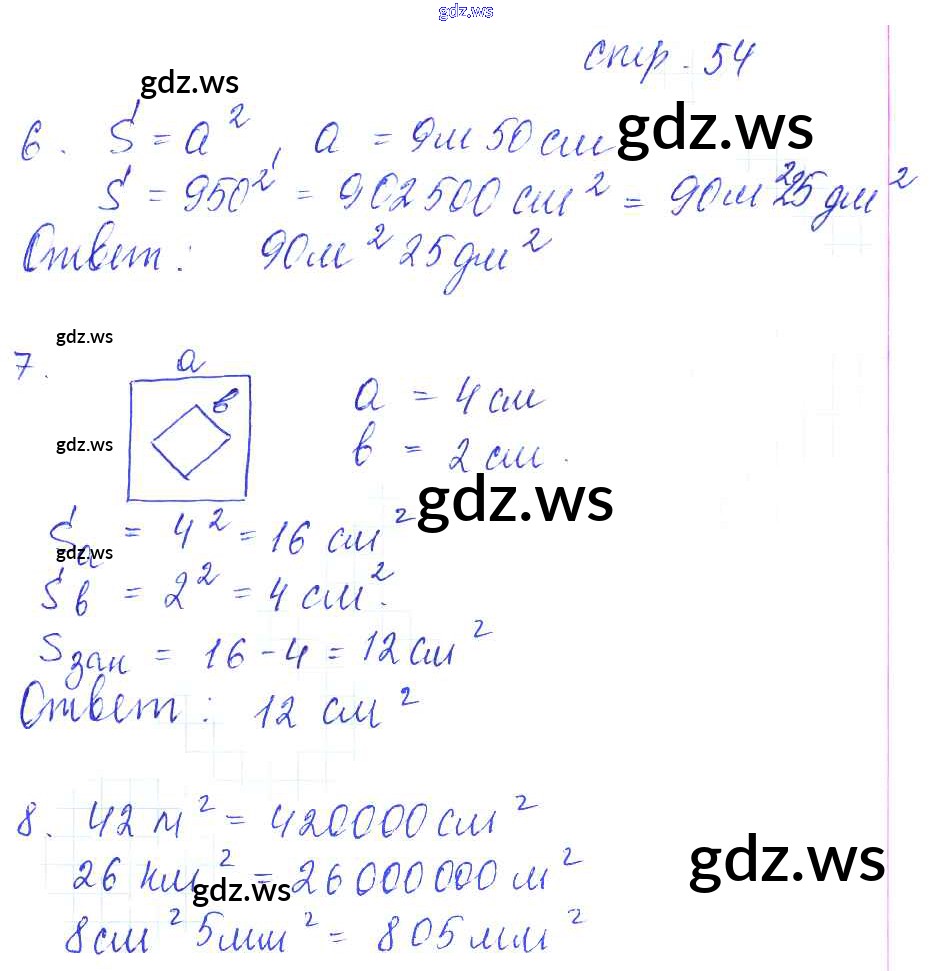 gdz.ws
стр. 54
gdz.ws
6. S = a², a = 9м 50 см
gdz.ws
S = 950² = 902500 см² = 90м² 25 дм²
Ответ: 90м² 25 дм²
gdz.ws
7.
a
в
a = 4 см
gdz.ws
в = 2 см.
gdz.ws
Sа = 4² = 16 см²
gdz.ws
Sв = 2² = 4 см².
Sзак = 16 - 4 = 12 см²
Ответ: 12 см²
8. 42 м² = 420000 см²
gdz.ws
26 км² = 26000000 м²
gdz.ws
8 см² 5 мм² = 805 мм²